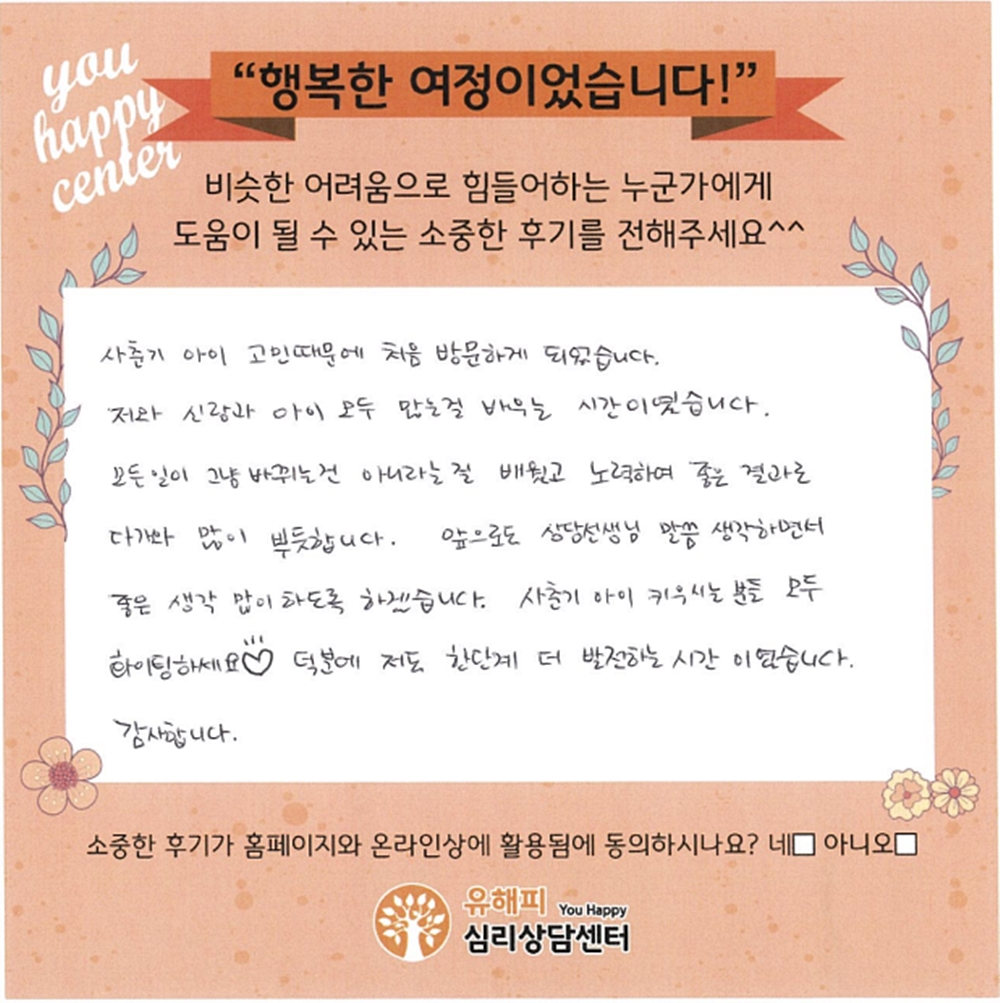 you
happy
center
“행복한 여정이었습니다!”
비슷한 어려움으로 힘들어하는 누군가에게
도움이 될 수 있는 소중한 후기를 전해주세요^^
사춘기 아이 고민때문에 처음 방문하게 되었습니다.
저와 신랑과 아이 모두 많는걸 배우는 시간이였습니다.
모든일이 그냥 바뀌는건 아니라는걸 배웠고 노력하여 좋은 결과로
다가와 많이 뿌듯합니다. 앞으로도 상담선생님 말씀 생각하면서
좋은 생각 많이 하도록 하겠습니다. 사춘기 아이 키우시는 분들 모두
화이팅하세요♡ 덕분에 저도 한단계 더 발전하는 시간 이였습니다.
감사합니다.
소중한 후기가 홈페이지와 온라인상에 활용됨에 동의하시나요? 네□ 아니오□
유해피 You Happy
심리상담센터